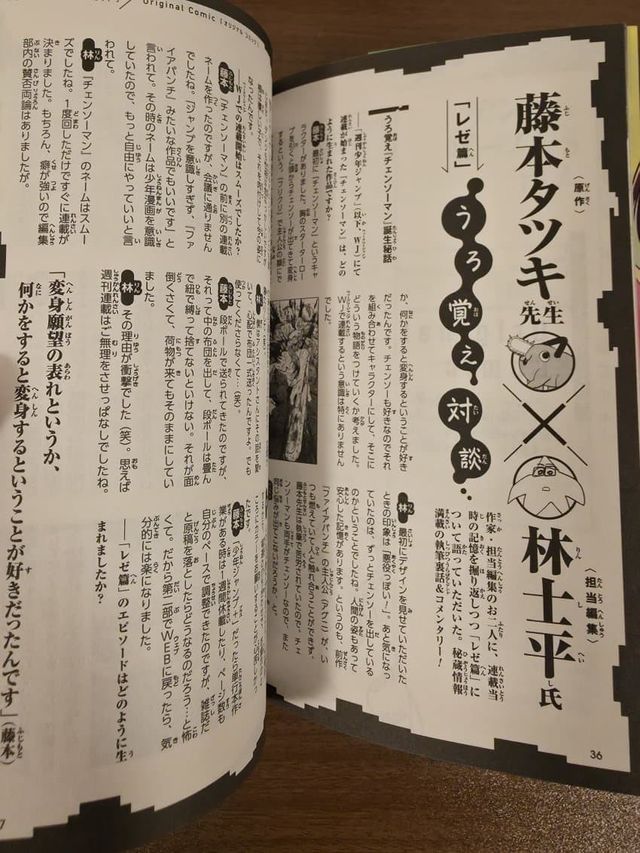 Original Comic [オリジナルコミック]
藤本タツキ先生
（原作）
×
林士平氏
（担当編集）
「レゼ篇」
うろ覚え対談
作家、担当編集のお二人に、連載当
時の記憶を振り返しつつ「レゼ篇」に
ついて語っていただいた。秘蔵情報
満載の執筆裏話&コメンタリー！
うろ覚え「チェンソーマン」誕生秘話
――「週刊少年ジャンプ」（以下、WJ）にて
連載が始まった「チェンソーマン」は、どの
ように生まれた作品ですか？
藤本 最初に「チェンソーマン」というキャ
ラクターが居りました。胸のスターターロー
か、何かをすると変身するということが好き
だったんです。チェンソーも好きなのでそれ
を組み合わせてキャラクターにして、そこに
どういう物語をつけていくか考えました。
WJで連載するという意識は特にありません
でした。
林 最初にデザインを見せていただいた
ときの印象は「悪役っぽい！」。あと気になっ
ていたのは、ずっとチェンソーを出している
のかということでしたね。人間の姿もあって
安心した記憶があります。というのも、前作
「ファイアパンチ」の主人公（アグニ）が、い
つも燃えていて、触れ合うことができず、
藤本先生は執筆で苦労されていたので、チェ
ンソーマンも両手がチェンソーなので、また
36
――WJでの連載開始はスムーズでしたか？
藤本 「チェンソーマン」の前に別の連載
ネームを作ったのですが、会議に通りません
でしたね。「ジャンプを意識しすぎず、「ファ
イアパンチ」みたいな作品でもいいです」と
言われて。その時のネームは少年漫画を意識
していたので、もっと自由にやっていいと言
われて。
林 「チェンソーマン」のネームはスムー
ズでしたね。1度回しただけですぐに連載が
決まりました。もちろん、癖が強いので編集
部内の賛否両論はありましたが。
いて、心配で布団一式送ったんですよ。でも
使ってくださらなくて…（笑）。
藤本 段ボールで送られてきたのですが、
それって中の布団を出して、段ボールは畳ん
で紐で縛って捨てないといけない。それが面
倒くさくて、荷物が来てもそのままにしてい
ました。
林 その理由が衝撃でした（笑）。思えば
週刊連載はご無理をさせっぱなしでしたね。
藤本 「少年ジャンプ+」だったら単行本作
業がある時は1週間休載したり、ページ数も
自分のペースで調整できたのですが、雑誌だ
と原稿を落としたらどうなるのだろう…と怖
くて。だから第二部でWEBに戻ったら、気
分的には楽になりました。
――「レゼ篇」のエピソードはどのように生
まれましたか？
「変身願望の表れというか、
何かをすると変身するということが好きだったんです」（藤本）